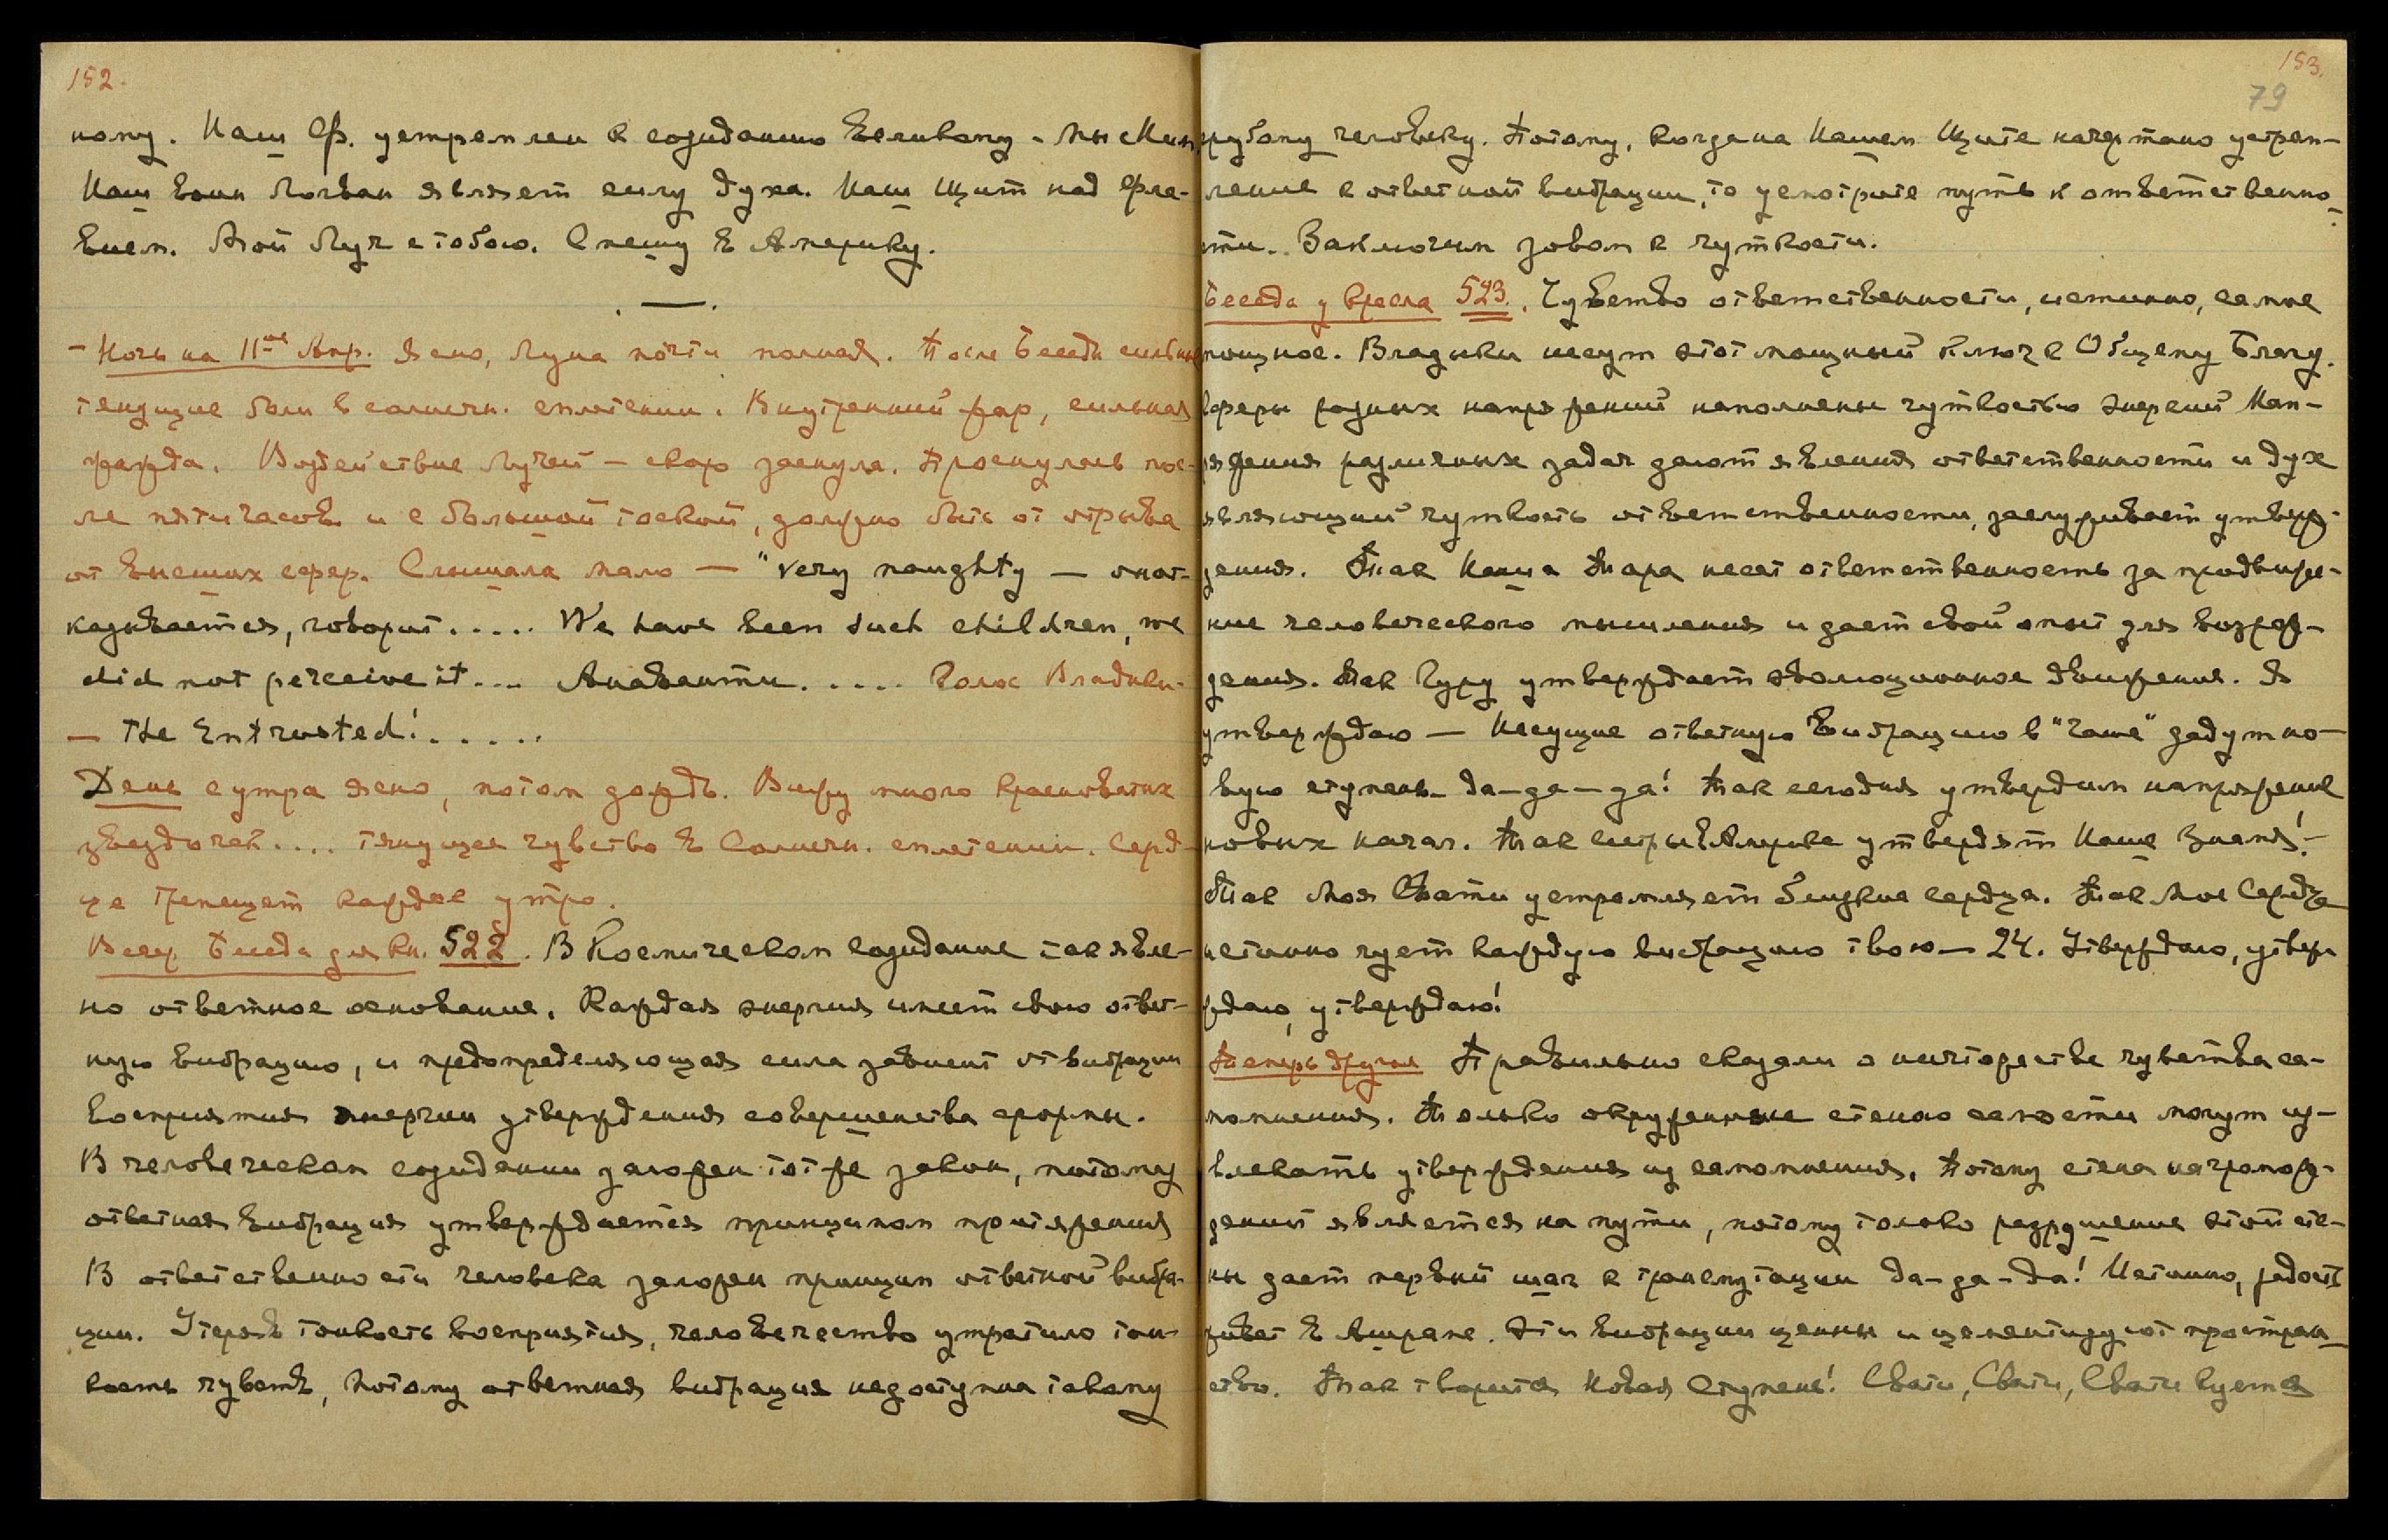 152.
ному. Наш Ф. устремлен к созиданию великому – Мы с Ним.
Наш воин Логван являет силу духа. Наш Щит над Фле-
вием. Мой Луч с тобою. Спешу в Америку.
– Ночь на 11ое Апр. Ясно, Луна почти полная. После Беседы сильные
тянущие боли в солнечн. сплетении. Внутренний жар, сильная
жажда. Воздействие Лучей – скоро заснула. Проснулась пос-
ле пяти часов и с большой тоской, должно быть от отрыва
от высших сфер. Слышала мало – "very naughty –
казывается, говорит..... We have been such children, we
did not perceive it.... Авиаванти..... Голос Владыки
– The Entrusted!......
День с утра ясно, потом дождь. Вижу много красноватых
звездочек.... тянущее чувство в Солнечн. сплетении. Серд-
це трепещет каждое утро.
Веч. Беседа для кн. 522. В Космическом созидание так явле-
но ответное основание. Каждая энергия имеет свою ответ-
ную вибрацию, и предопределяющая сила зависит от вибрации
восприятия энергии утверждения совершенства формы.
В человеческом созидании заложен тот же закон, потому
ответная вибрация утверждается принципом притяжения
В ответственности человека заложен принцип ответной вибра-
ции. Утеряв тонкость восприятия, человечество утратило тон-
кость чувств, потому ответная вибрация недоступна такому
153.
79
грубому человеку. Потому, когда на Нашем Щите начертано устрем-
ление к ответной вибрации, то усмотрите путь к ответственно-
сти. Заключим зовом к чуткости.
Беседа у кресла 523. Чувство ответственности, истинно, самое
мощное. Владыки несут этот мощный ключ к Общему Благу.
Сферы разных напряжений наполнены чуткостью энергий Нап-
ряжения различных задач дают явления ответственности и дух
являющий чуткость ответственности, заслуживает утверж-
дения. Так Наша Тара несет ответственность за продвиже-
ние человеческого мышления и дает свой опыт для возрож-
дения. Так Гуру утверждает эволюционное движение. Я
утверждаю – Несущие ответную вибрацию в "чаше" дадут но-
вую ступень – да–да–да! Так сегодня утвердим напряжение
новых начал. Так сестры в Америке утвердят Наше Знамя! –
Так Моя Свати устремляет близкие сердца. Так Мое Сердце
истинно чует каждую вибрацию твою – 24. Утверждаю, утвер-
ждаю, утверждаю!
Теперь другое Правильно сказали о ничтожестве чувства са-
момнения. Только окруженные стеною самости могут из-
влекать утверждения из самомнения. Потому стена нагромож-
дений является на пути, потому только разрушение этой сте-
ны дает первый шаг к трансмутации да–да–да! Истинно, радость
живет в Ашраме. Эти вибрации ценны и цементируют простран-
ство. Так творится Новая Ступень! Свати, Свати, Свати куется